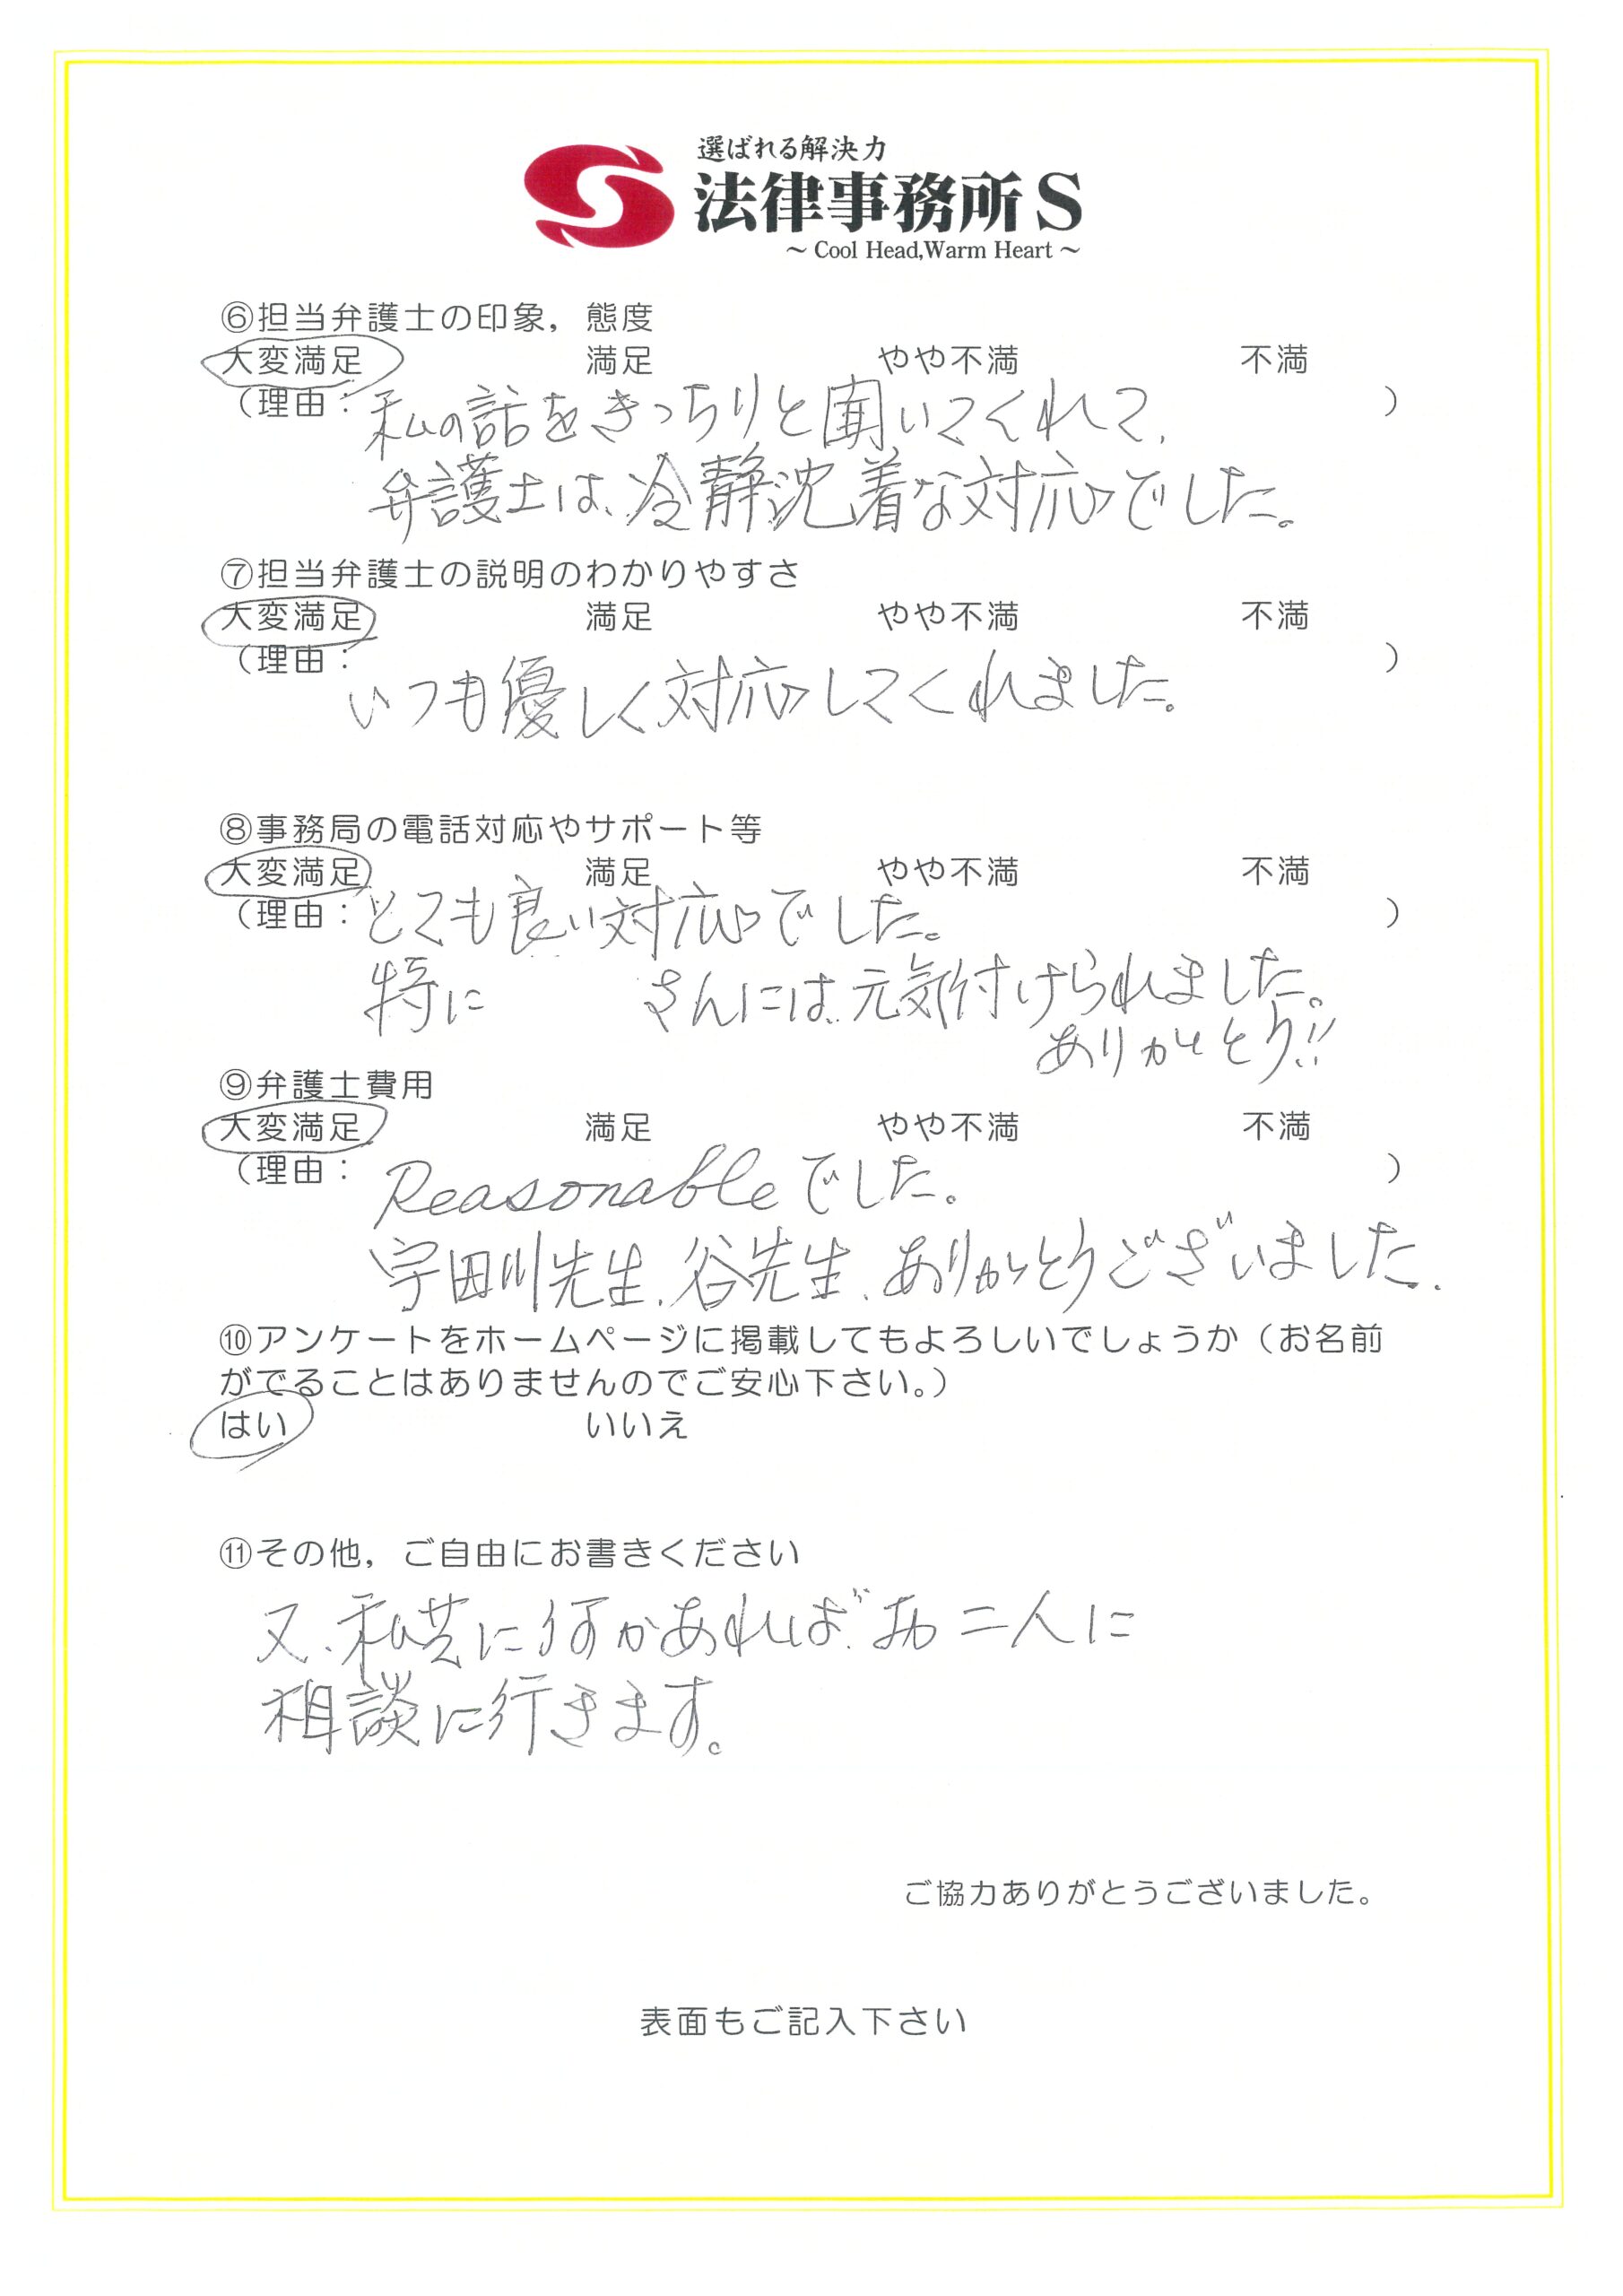 選ばれる解決力
法律事務所S
～Cool Head,Warm Heart～
⑥担当弁護士の印象，態度
大変満足　満足　やや不満　不満
（理由：私の話をきっちりと聞いてくれて、　）
弁護士は、冷静沈着な対応でした。
⑦担当弁護士の説明のわかりやすさ
大変満足　満足　やや不満　不満
（理由：　）
いつも優しく対応してくれました。
⑧事務局の電話対応やサポート等
大変満足　満足　やや不満　不満
（理由：とても良い対応でした。　）
特に　さんには、元気付けられました。
ありがとう!!
⑨弁護士費用
大変満足　満足　やや不満　不満
（理由：Reasonableでした。　）
宇田川先生、谷先生、ありがとうございました.
⑩アンケートをホームページに掲載してもよろしいでしょうか（お名前
がでることはありませんのでご安心下さい。）
はい　いいえ
⑪その他，ご自由にお書きください
又、私共に何かあれば、お二人に
相談に行きます。
ご協力ありがとうございました。
表面もご記入下さい